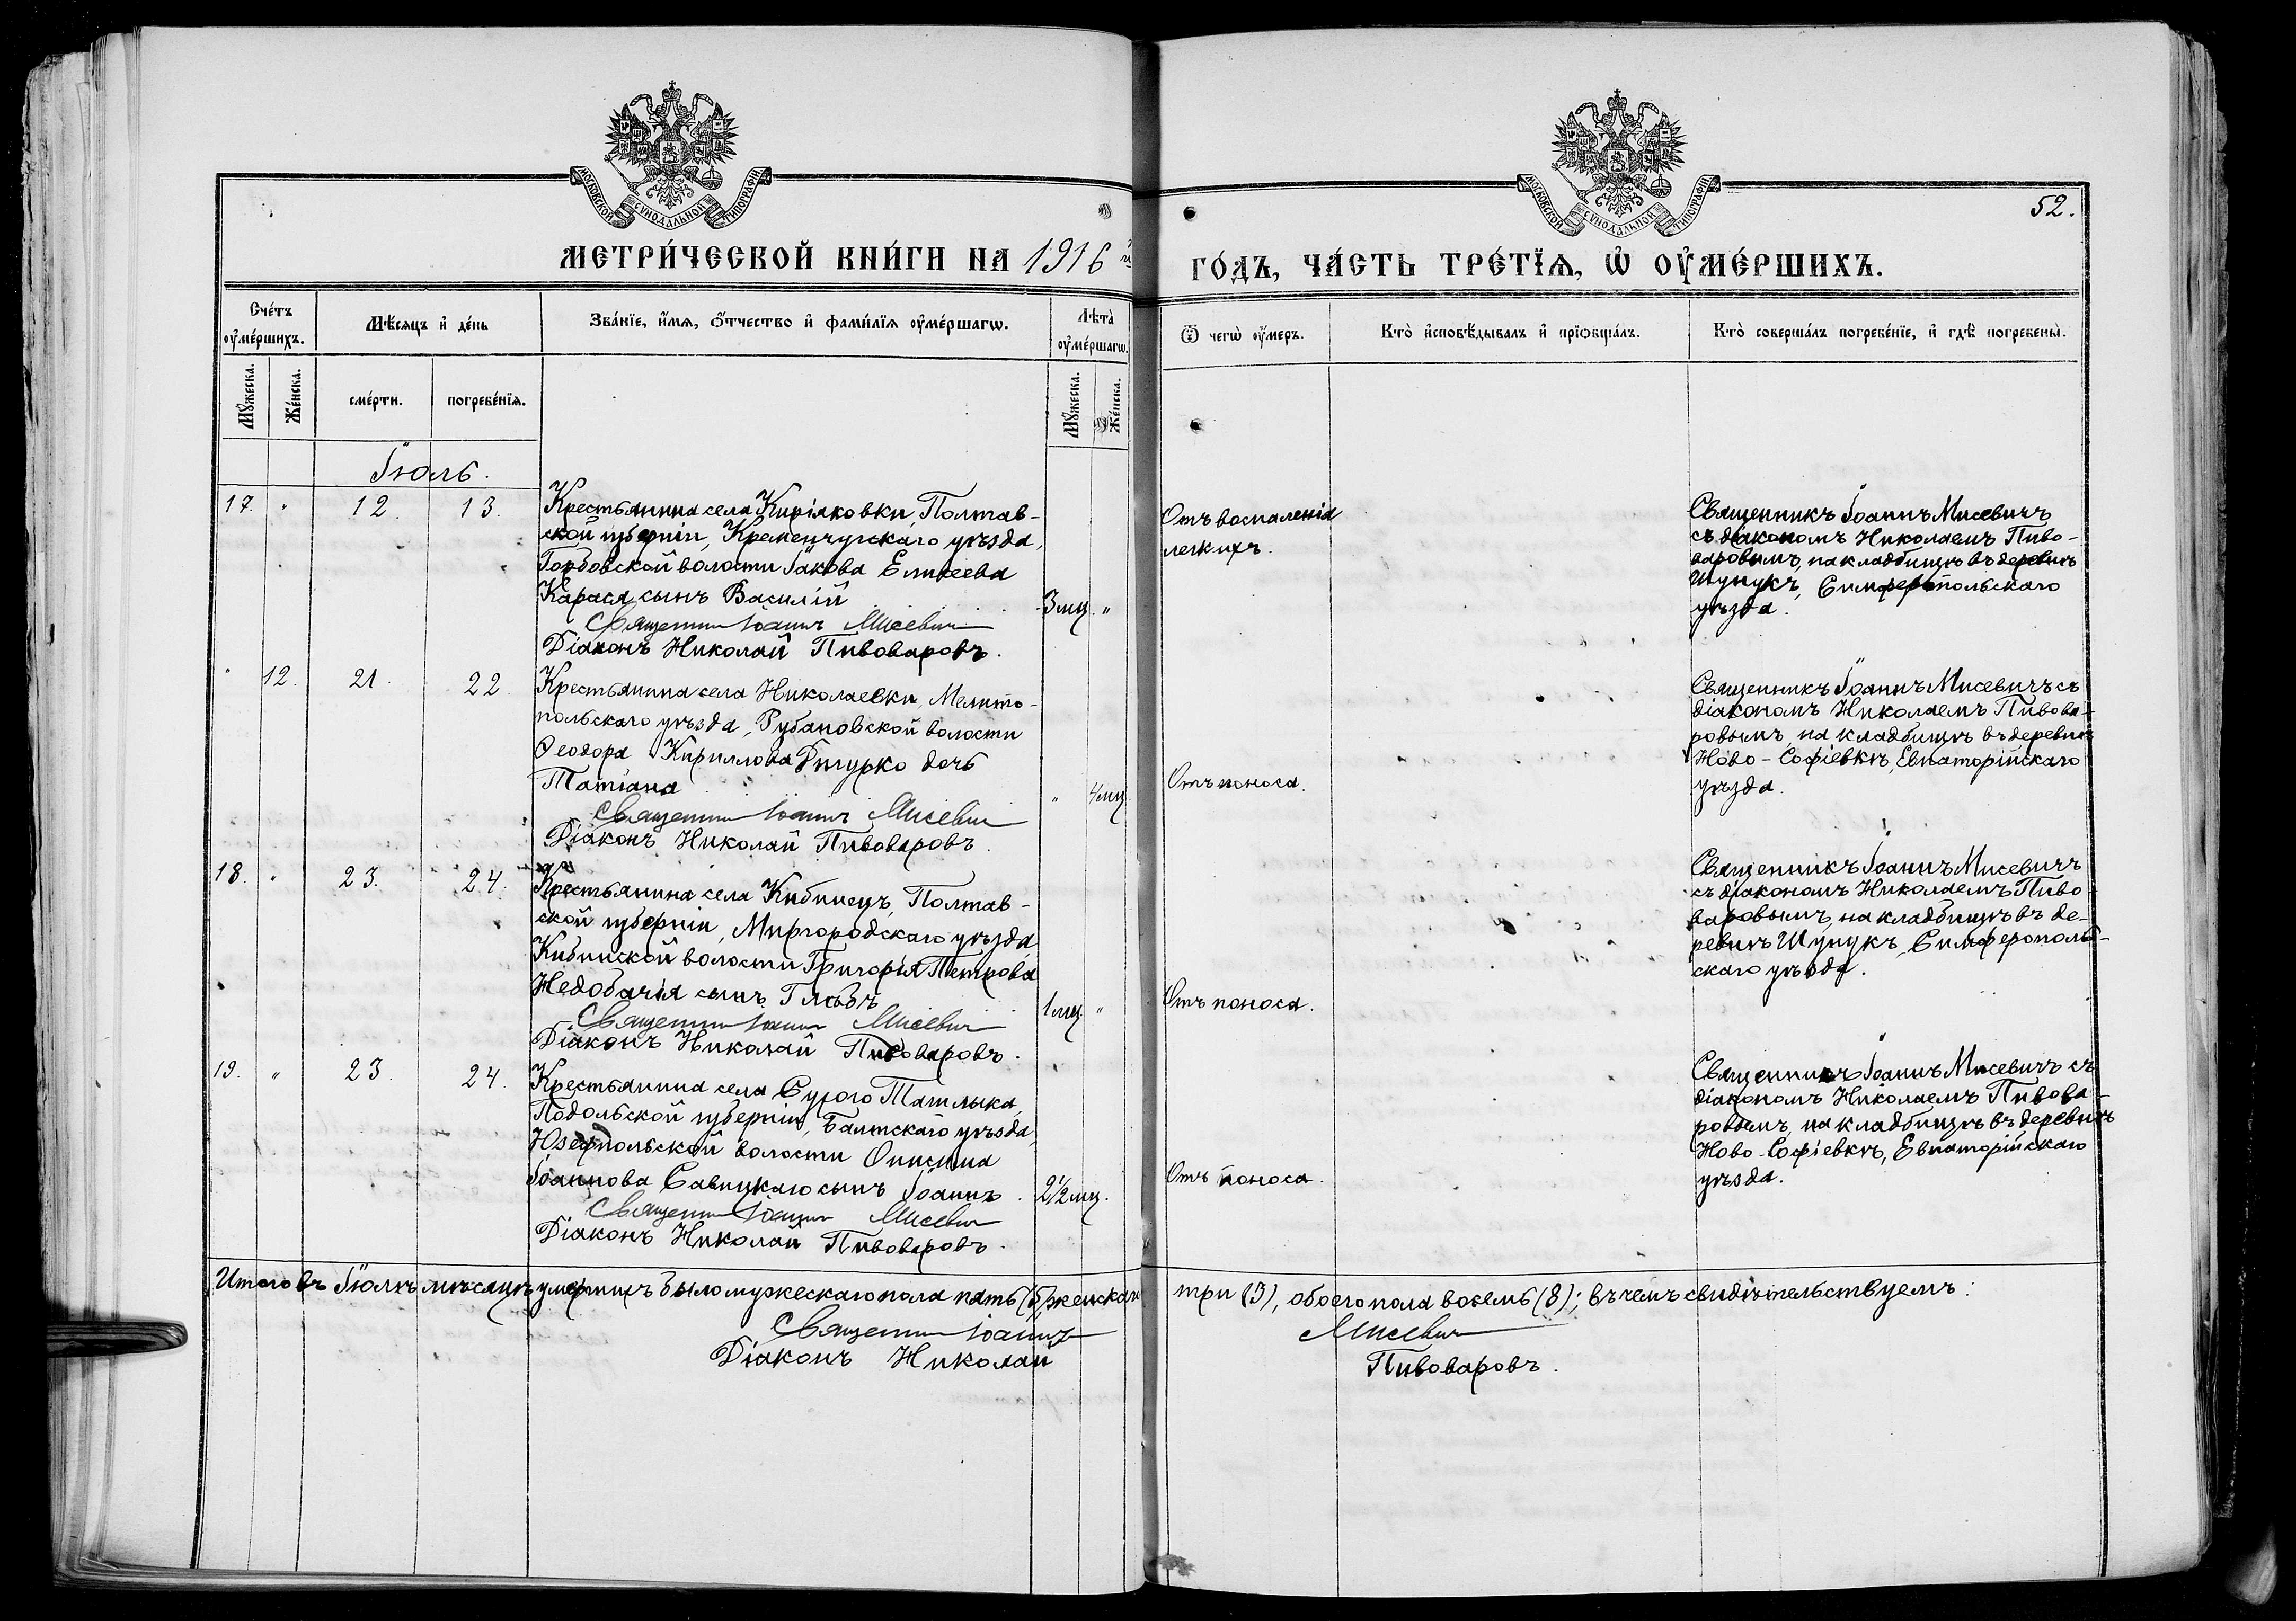 МОСКОВСКОЙ СѴНОДАЛЬНОЙ ТИПОГРАФІИ
МЕТРИ́ЧЕСКОЙ КНИ́ГИ НА 1916й
Сче́тъ оу҆ме́ршихъ.
Мѣ́сяцъ и҆ де́нь
Зва́нїе, и҆́мѧ, ѻ҆́тчество и҆ фами́лїѧ оу҆ме́ршагѡ.
Лѣ́та оу҆ме́ршагѡ.
Мꙋ́жеска.
Же́нска.
сме́рти.
погребе́нїѧ.
Мꙋ́жеска.
Же́нска.
Іюль.
17. " 12. 13.
Крестьянина села Киріаковки, Полтав-
ской губерніи, Кременчугскаго уѣзда,
волости Іакова Елисеева
Карася сынъ Василій 3 мц. "
Священникъ Іоаннъ Мисевичъ
Діаконъ Николай Пивоваровъ.
" 12. 21. 22.
Крестьянина села Николаевки, Мелито-
польскаго уѣзда, Рубановской волости
Ѳеодора Кириллова дочь
Татіана " 4 мц.
Священникъ Іоаннъ Мисевичъ
Діаконъ Николай Пивоваровъ.
18. " 23. 24.
Крестьянина села Кибинецъ, Полтав-
ской губерніи, Миргородскаго уѣзда,
Кибинской волости Григорія Петрова
Недобачія сынъ Глѣбъ 1 мц. "
Священникъ Іоаннъ Мисевичъ
Діаконъ Николай Пивоваровъ.
19. " 23. 24.
Крестьянина села Сухого Ташлыка,
Подольской губерніи, Балтскаго уѣзда,
Юзефпольской волости Онисима
Іоаннова Савицкаго сынъ Іоаннъ. 2½ мц.
Священникъ Іоаннъ Мисевичъ
Діаконъ Николай Пивоваровъ.
Итого въ Іюлѣ мѣсяцѣ умершихъ было мужескаго пола пять (5), женскаго
Священникъ Іоаннъ
Діаконъ Николай
МОСКОВСКОЙ СѴНОДАЛЬНОЙ ТИПОГРАФІИ
52.
ГО́ДЪ, ЧА́СТЬ ТРЕ́ТЇѦ, Ѡ҆ ОУ҆МЕ́РШИХЪ.
Ѿ чегѡ̀ оу҆́меръ.
Кто̀ и҆сповѣ́дывалъ и҆ прїѡбща́лъ.
Кто̀ соверша́лъ погребе́нїе, и҆ гдѣ̀ погребены̀.
Отъ воспаленія
легкихъ.
Священникъ Іоаннъ Мисевичъ
съ діакономъ Николаемъ Пиво-
варовымъ, на кладбищѣ въ деревнѣ
Шунукъ, Симферопольскаго
уѣзда.
Отъ поноса.
Священникъ Іоаннъ Мисевичъ съ
діакономъ Николаемъ Пивова-
ровымъ, на кладбищѣ въ деревнѣ
Ново-Софіевкѣ, Евпаторійскаго
уѣзда.
Отъ поноса.
Священникъ Іоаннъ Мисевичъ
съ діакономъ Николаемъ Пиво-
варовымъ, на кладбищѣ въ де-
ревнѣ Шунукъ, Симферополь-
скаго уѣзда.
Отъ поноса.
Священникъ Іоаннъ Мисевичъ съ
діакономъ Николаемъ Пивова-
ровымъ, на кладбищѣ въ деревнѣ
Ново-Софіевкѣ, Евпаторійскаго
уѣзда.
три (3), обоего пола восемь (8); въ чемъ свидѣтельствуемъ:
Мисевичъ
Пивоваровъ.